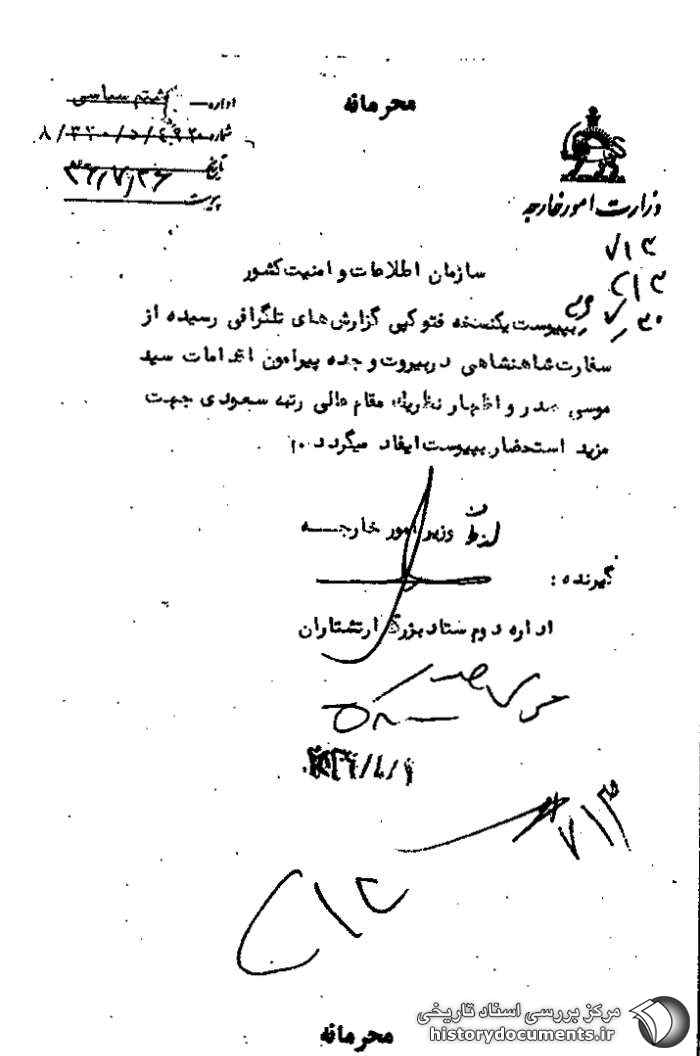 محرمانه
اداره هشتم سیاسی
شماره
تاریخ ۳۶/۷/۲۶
پیوست
وزارت امور خارجه
۷۱۳
سازمان اطلاعات و امنیت کشور
بپیوست یکنسخه فتوکپی گزارش‌های تلگرافی رسیده از
سفارت شاهنشاهی در بیروت و جده پیرامون اقدامات سید
موسی صدر و اظهار نظر یک مقام عالی رتبه سعودی جهت
مزید استحضار بپیوست ایفاد میگردد.
وزیر امور خارجه
گیرنده :
اداره دوم ستاد بزرگ ارتشتاران
موسی صدر
۷۱۳
محرمانه
مرکز بررسی اسناد تاریخی
historydocuments.ir